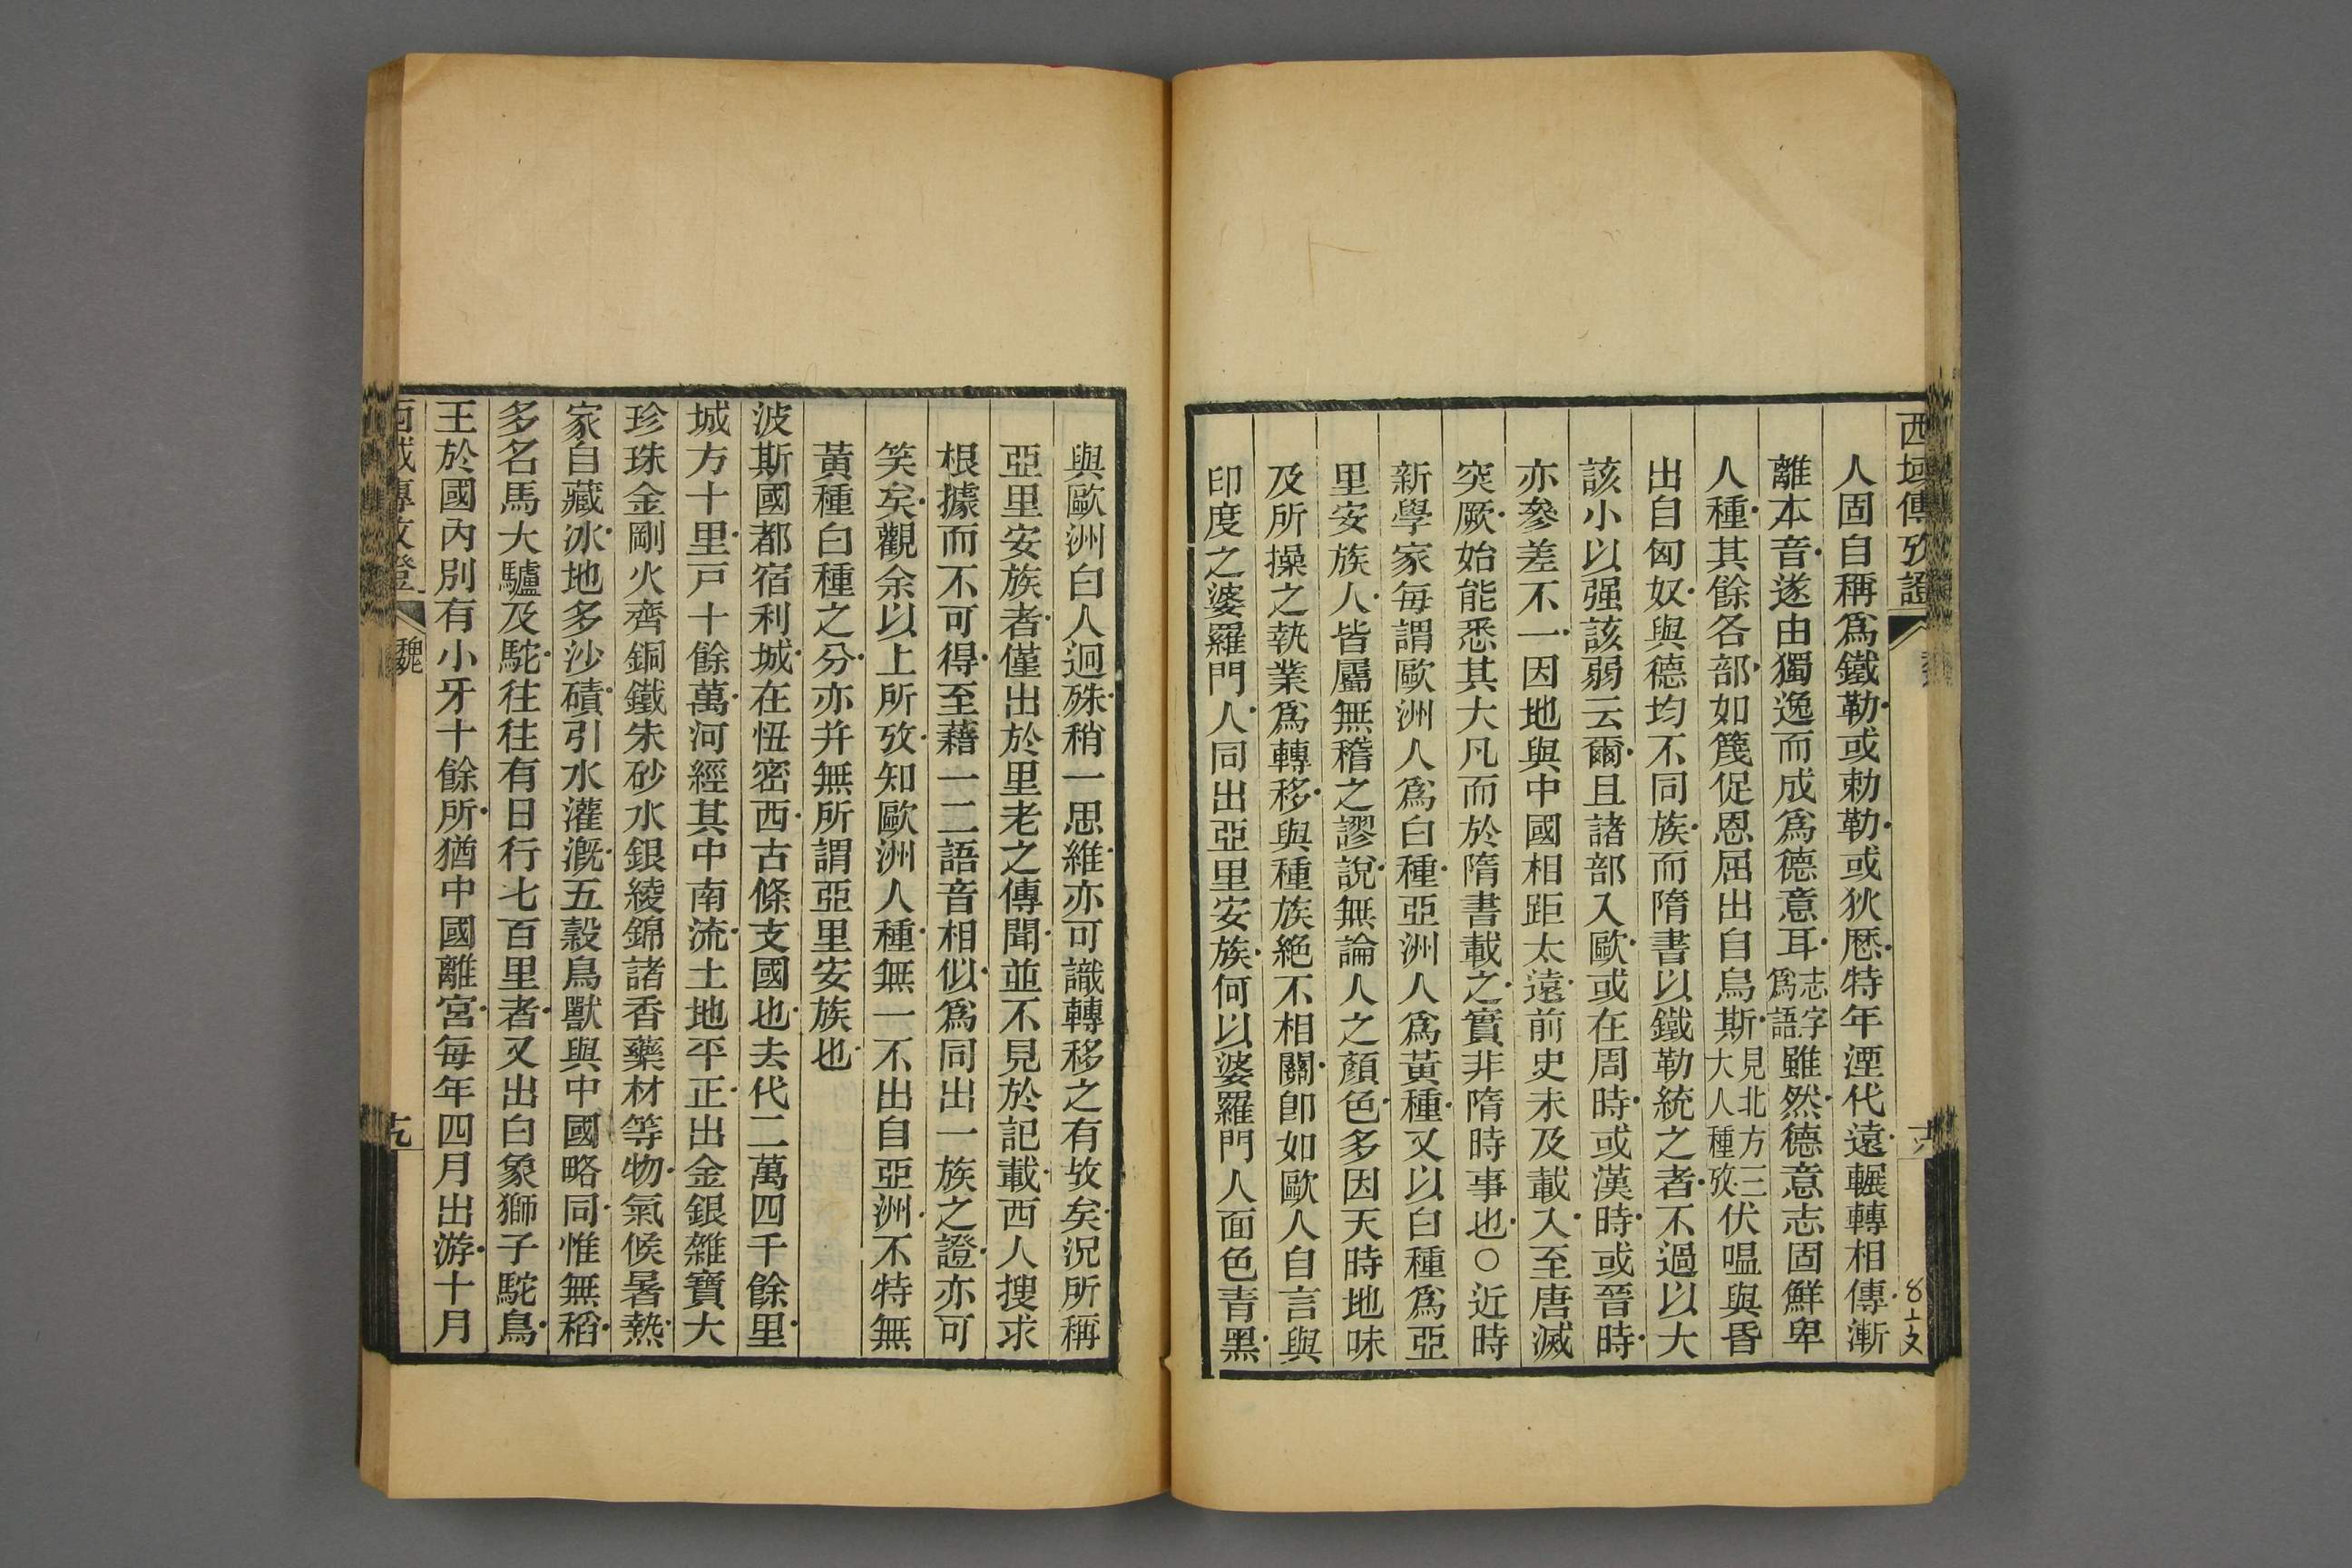 西域傳攷證
人固自稱爲鐵勒或勅勒或狄厯特年湮代遠輾轉相傳漸
離本音遂由獨逸而成爲德意耳志字爲語雖然德意志固鮮卑
人種其餘各部如篾促恩屈出自烏斯見北方三大人種攷伏嗢與昏
出自匈奴與德均不同族而隋書以鐵勒統之者不過以大
該小以强該弱云爾且諸部入歐或在周時或漢時或晉時
亦參差不一因地與中國相距太遠前史未及載入至唐滅
突厥始能悉其大凡而於隋書載之實非隋時事也○近時
新學家每謂歐洲人爲白種亞洲人爲黃種又以白種爲亞
里安族人皆屬無稽之謬說無論人之顏色多因天時地味
及所操之執業爲轉移與種族絕不相關卽如歐人自言與
印度之婆羅門人同出亞里安族何以婆羅門人面色青黑
與歐洲白人迥殊稍一思維亦可識轉移之有故矣況所稱
亞里安族者僅出於里老之傳聞並不見於記載西人搜求
根據而不可得至藉一二語音相似爲同出一族之證亦可
笑矣觀余以上所攷知歐洲人種無一不出自亞洲不特無
黃種白種之分亦并無所謂亞里安族也
波斯國都宿利城在忸密西古條支國也去代二萬四千餘里
城方十里戸十餘萬河經其中南流土地平正出金銀雜寶大
珍珠金剛火齊銅鐵朱砂水銀綾錦諸香藥材等物氣候暑熱
家自藏冰地多沙磧引水灌漑五穀鳥獸與中國略同惟無稻
多名馬大驢及駝往往有日行七百里者又出白象獅子駝鳥
王於國內別有小牙十餘所猶中國離宮每年四月出游十月
西域傳攷證 魏